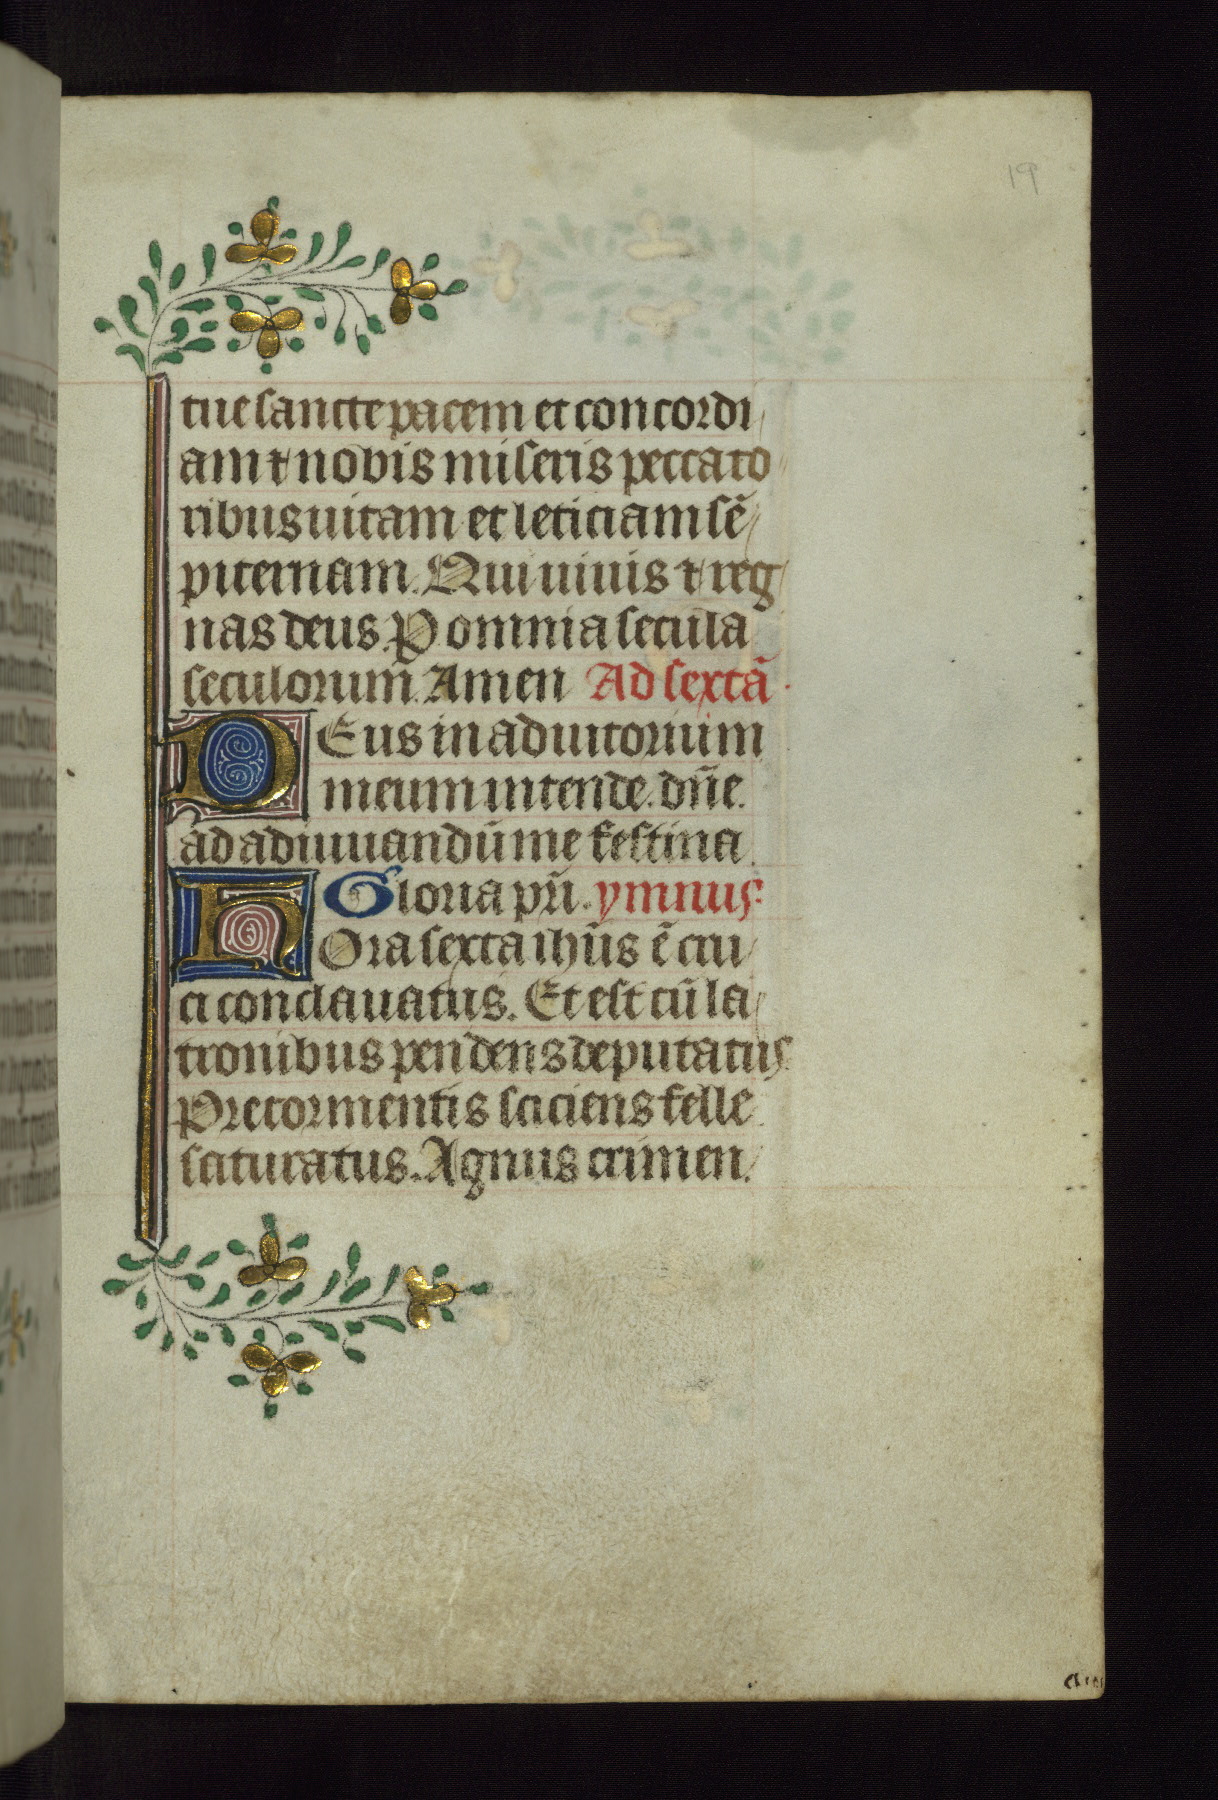 19
tue sancte pacem et concordi
am ⁊ nobis miseris peccato
ribus uitam et leticiam sē
piternam. Qui uiuis ⁊ reg
nas deus. P̲ omnia secula
seculorum. Amen Ad sextā.
DEus in adiutorium
meum intende. dn̄e.
ad adiuuandū me festina.
Gloria pr̄i. ymnus.
HOra sexta ih̄us ē cru
ci conclauatus. Et est cū la
tronibus pendens deputatus
Pre tormentis sciciens felle
scituratus. Agnus crimen